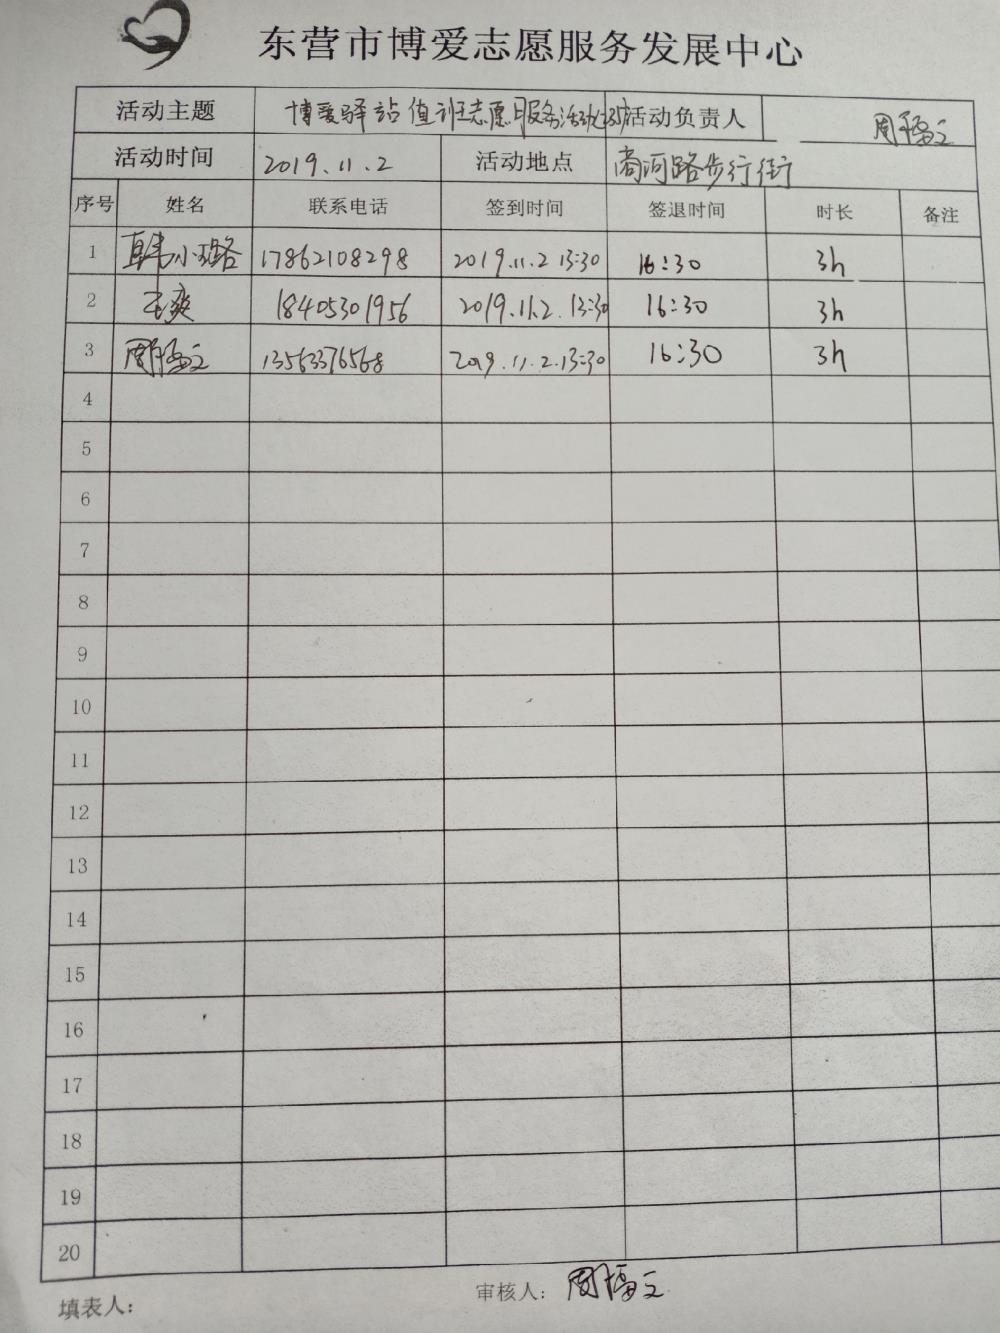 东营市博爱志愿服务发展中心
活动主题 博爱驿站值班志愿服务活动 活动负责人
活动时间 2019.11.2 活动地点 商河路步行街
序号 姓名 联系电话 签到时间 签退时间 时长 备注
1 韩小璐 17862108298 2019.11.2 13:30 16:30 3h
2 王爽 18405301956 2019.11.2. 13:30 16:30 3h
3 周福立 13563376568 2019.11.2.13:30 16:30 3h
4
5
6
7
8
9
10
11
12
13
14
15
16
17
18
19
20
填表人: 审核人: 周福立